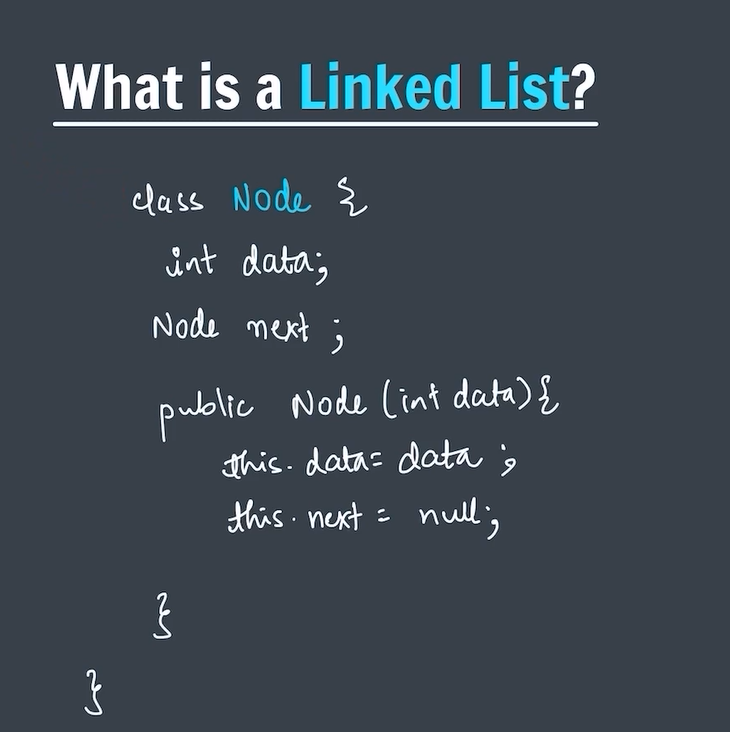 What is a Linked List?
class Node {
int data;
Node next ;
public Node (int data) {
this. data = data ;
this. next = null;
}
}